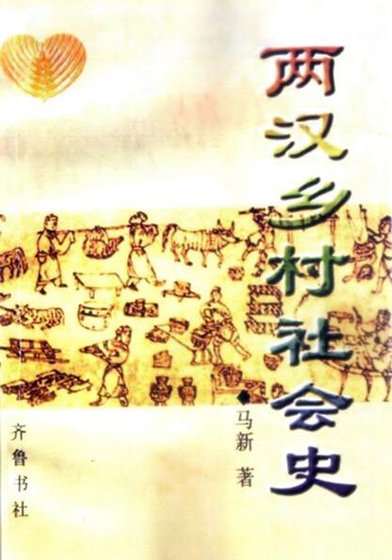 两汉乡村社会史
马新 著
齐鲁书社